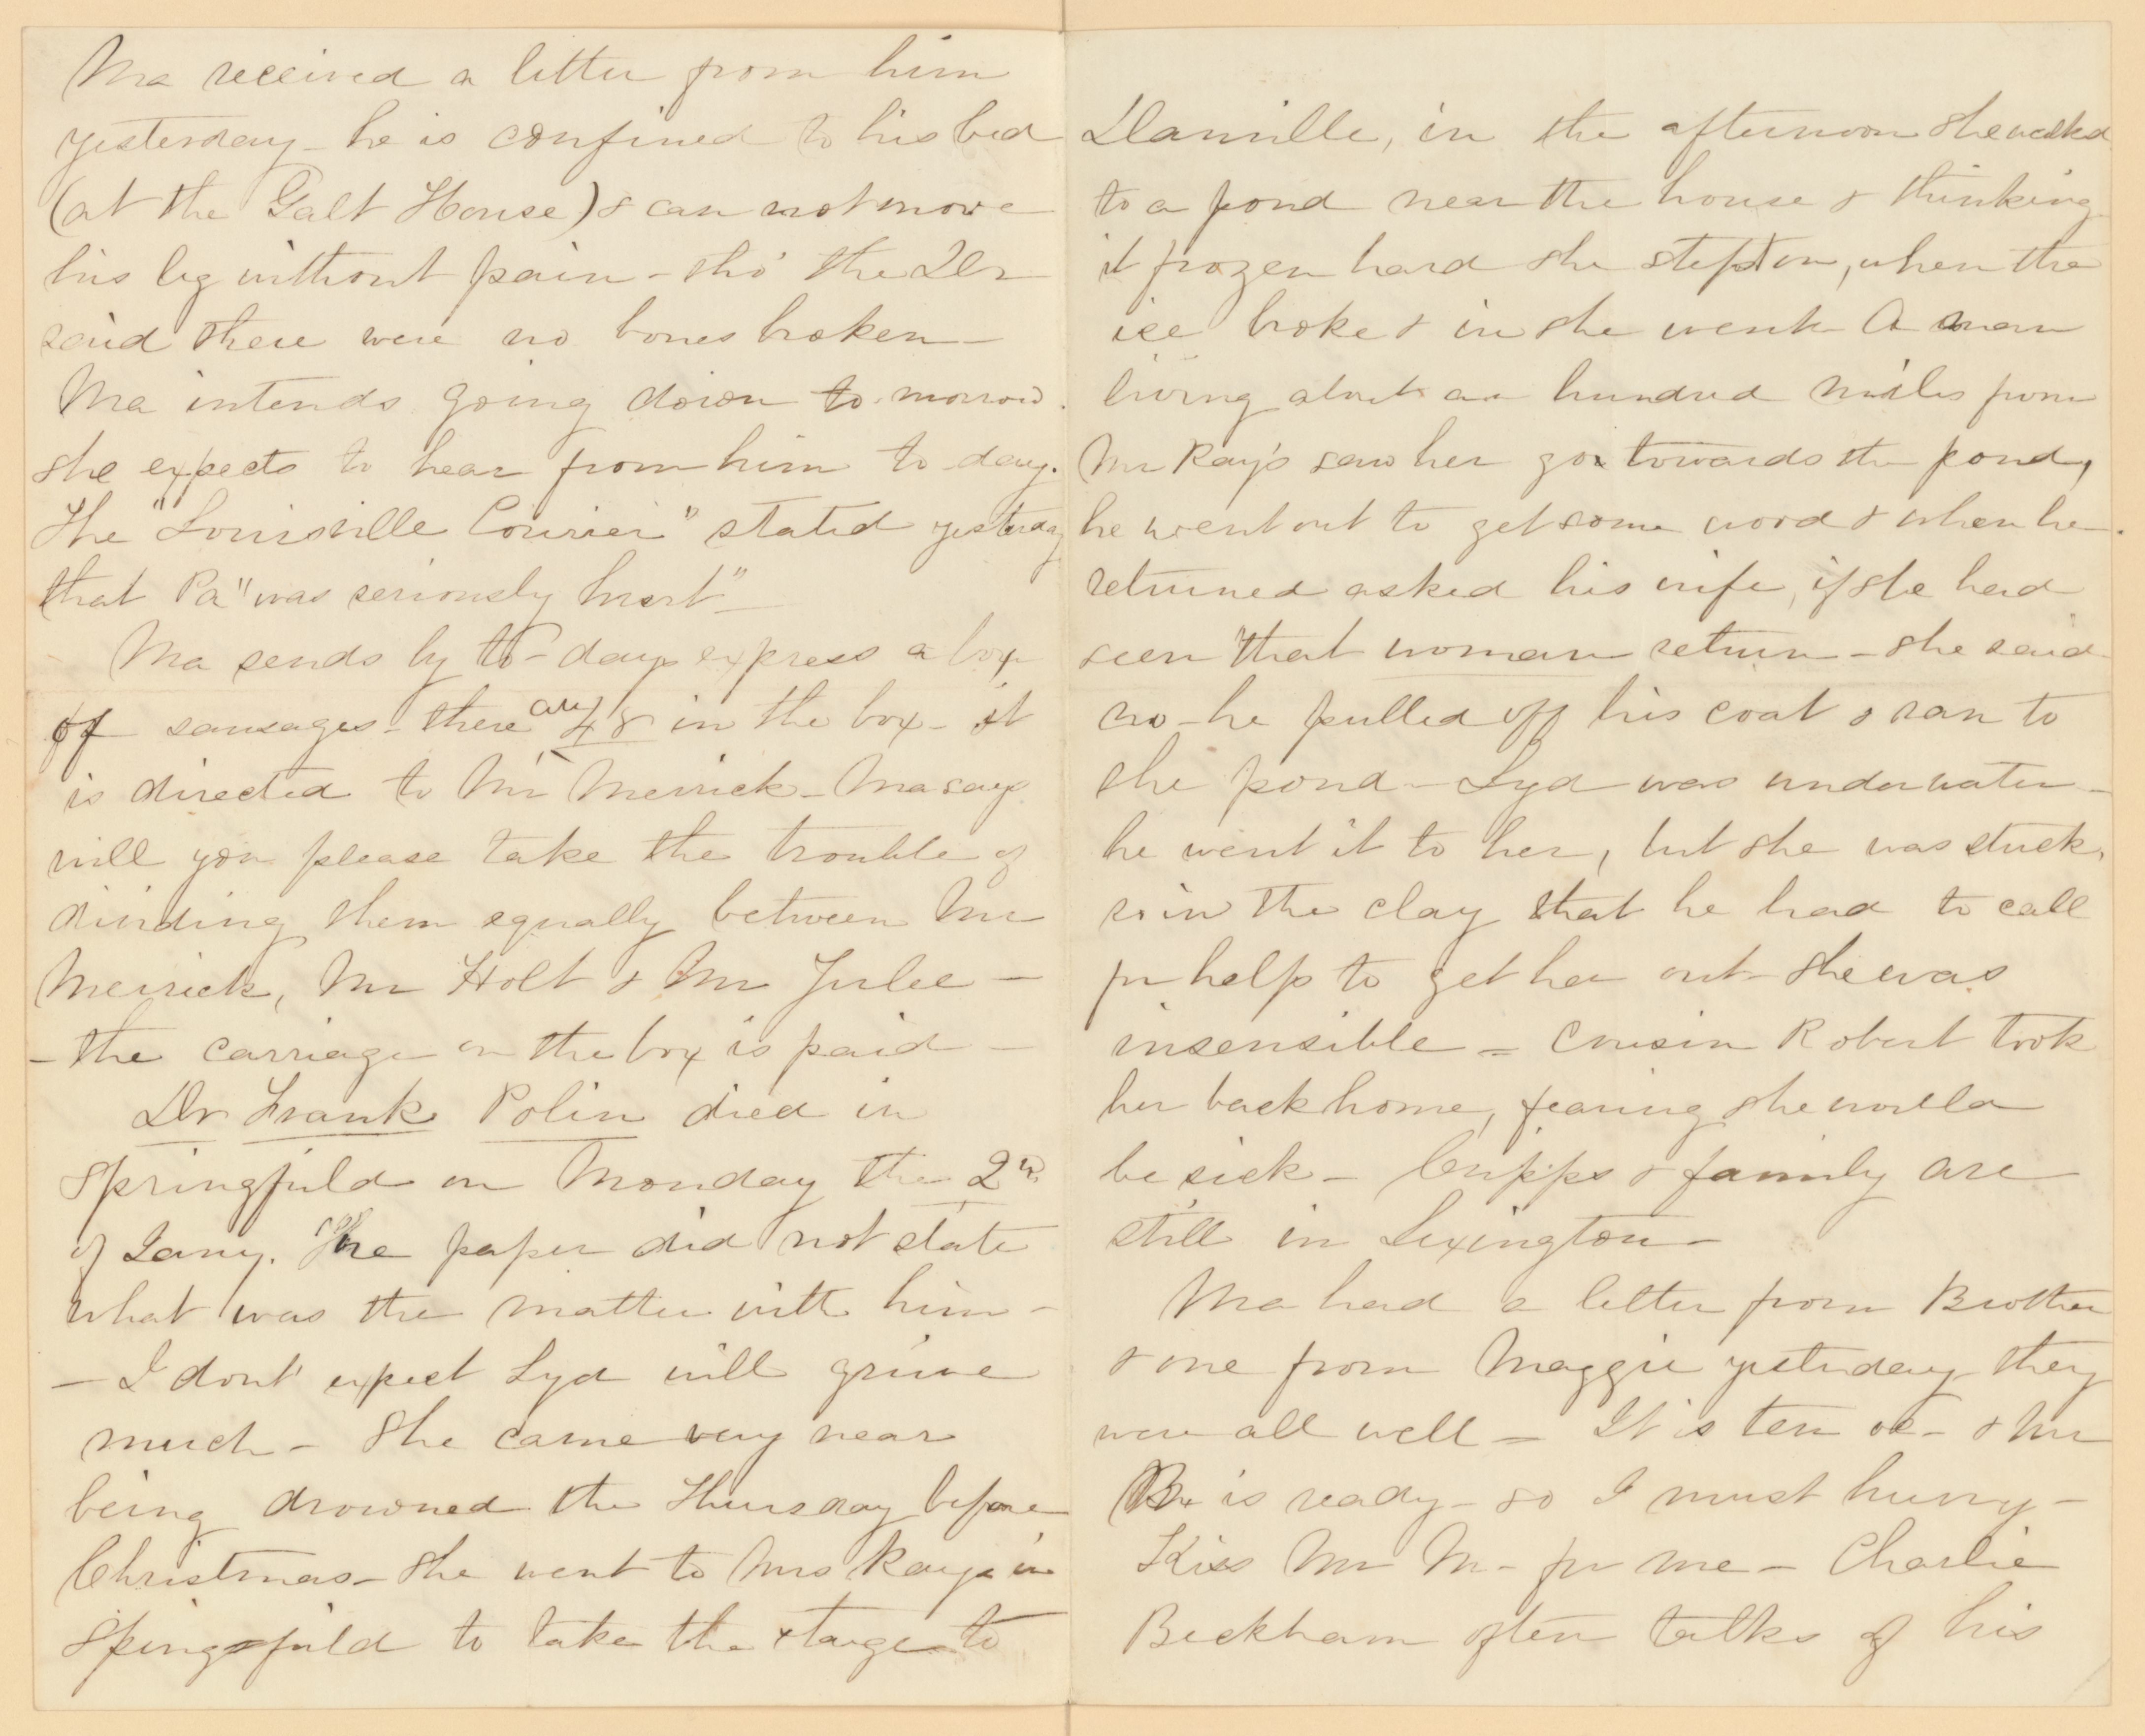 Ma received a letter from him
yesterday - he is confined to his bed
(at the Galt House) & can not move
his leg without pain - tho' the Dr
said there were no bones broken -
Ma intends going down to-morrow.
she expects to hear from him to-day.
The "Louisville Courier" stated yesterday
that Pa "was seriously hurt" -
Ma sends by to-days express a box
of sausages - there are 48 in the box - it
is directed to Mr Merrick - Ma says
will you please take the trouble of
dividing them equally between Mr
Merrick, Mr Holt & Mr Yulee -
- the carriage on the box is paid -
Dr Frank Polin died in
Springfield on Monday the 2nd
of Jany. The paper did not state
what was the matter with him -
- I dont expect Lyd will grieve
much - She came very near
being drowned the Thursday before
Christmas - She went to Mrs Ray's in
Springfield to take the stage to
Danville, in the afternoon she walked
to a pond near the house & thinking
it frozen hard she stept on, when the
ice broke & in she went - A man
living about an hundred miles from
Mr Ray's saw her go towards the pond,
he went out to get some wood & when he
returned asked his wife, if she had
seen "that woman return - she said
no - he pulled off his coat & ran to
the pond - Lyd was under water -
he went it to her, but she was stuck
so in the clay that he had to call
for help to get her out - she was
insensible = Cousin Robert took
her back home, fearing she would
be sick - Cripps & family are
still in Lexington -
Ma had a letter from Brother
& one from Maggie yesterday - they
were all well = It is ten oc - & Mr
Br is ready - so I must hurry -
Kiss Mr M - for me - Charlie
Beckham often talks of his